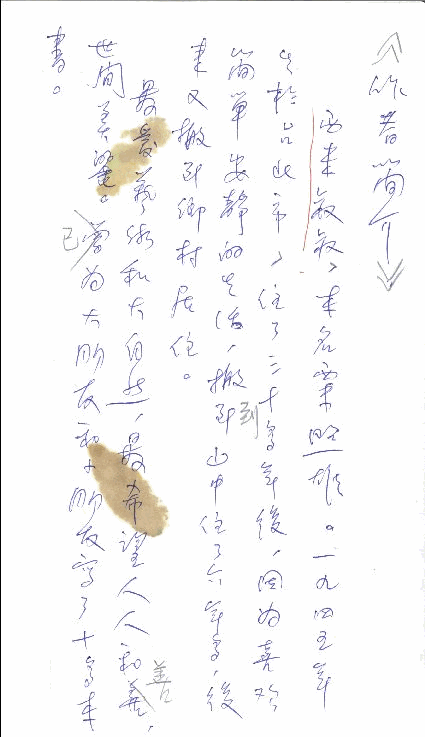 《作者簡介》
本名粟照雄。一九四五年
生於台北市，住了三十多年後，因為喜歡
簡單安靜的生活，搬到山中住了六年多，後
到
來又搬到鄉村居住。
最愛藝術和大自然，最希望人人和善，
善
世間美麗。為大朋友和小朋友寫了十多本
已
書。